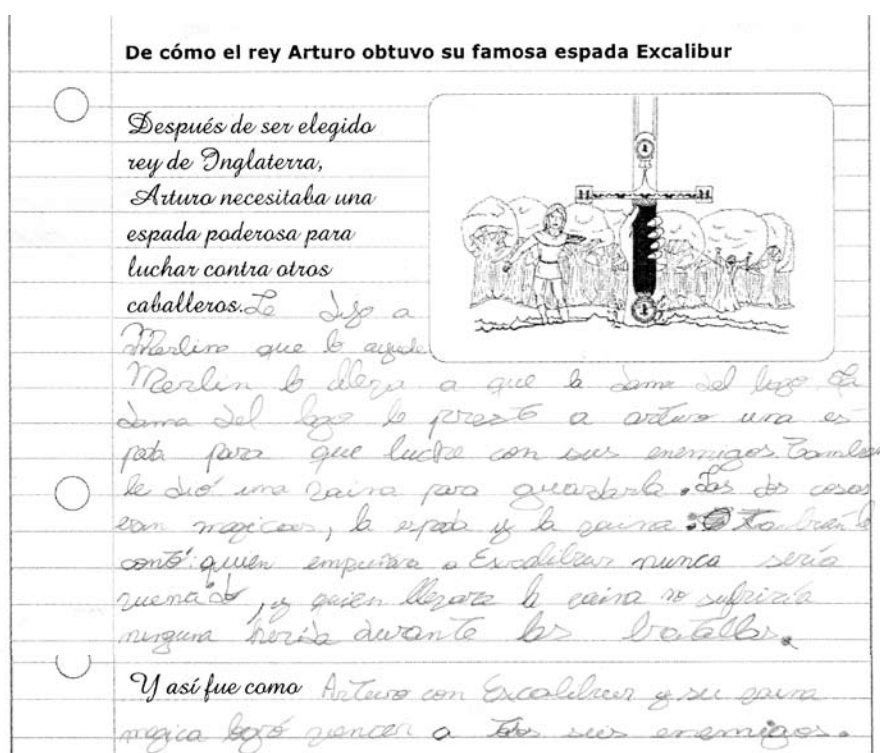 De cómo el rey Arturo obtuvo su famosa espada Excalibur
Después de ser elegido
rey de Inglaterra,
Arturo necesitaba una
espada poderosa para
luchar contra otros
caballeros. Le dijo a
Merlino que lo ayude
Merlin lo lleva a que la dama del lago. La
dama del lago le prestó a arturo una es
pada para que luche con sus enemigos. Tambien
le dió una vaina para guardarla. Las dos cosas
eran magicas, la espada y la vaina. Tambien le
contó: quien empuñara a Excalibur nunca sería
, y quien llevara la vaina no sufriría
ninguna herida durante las batallas.
Y así fue como Arturo con Excalibur y su vaina
magica logró vencer a todos sus enemigos.